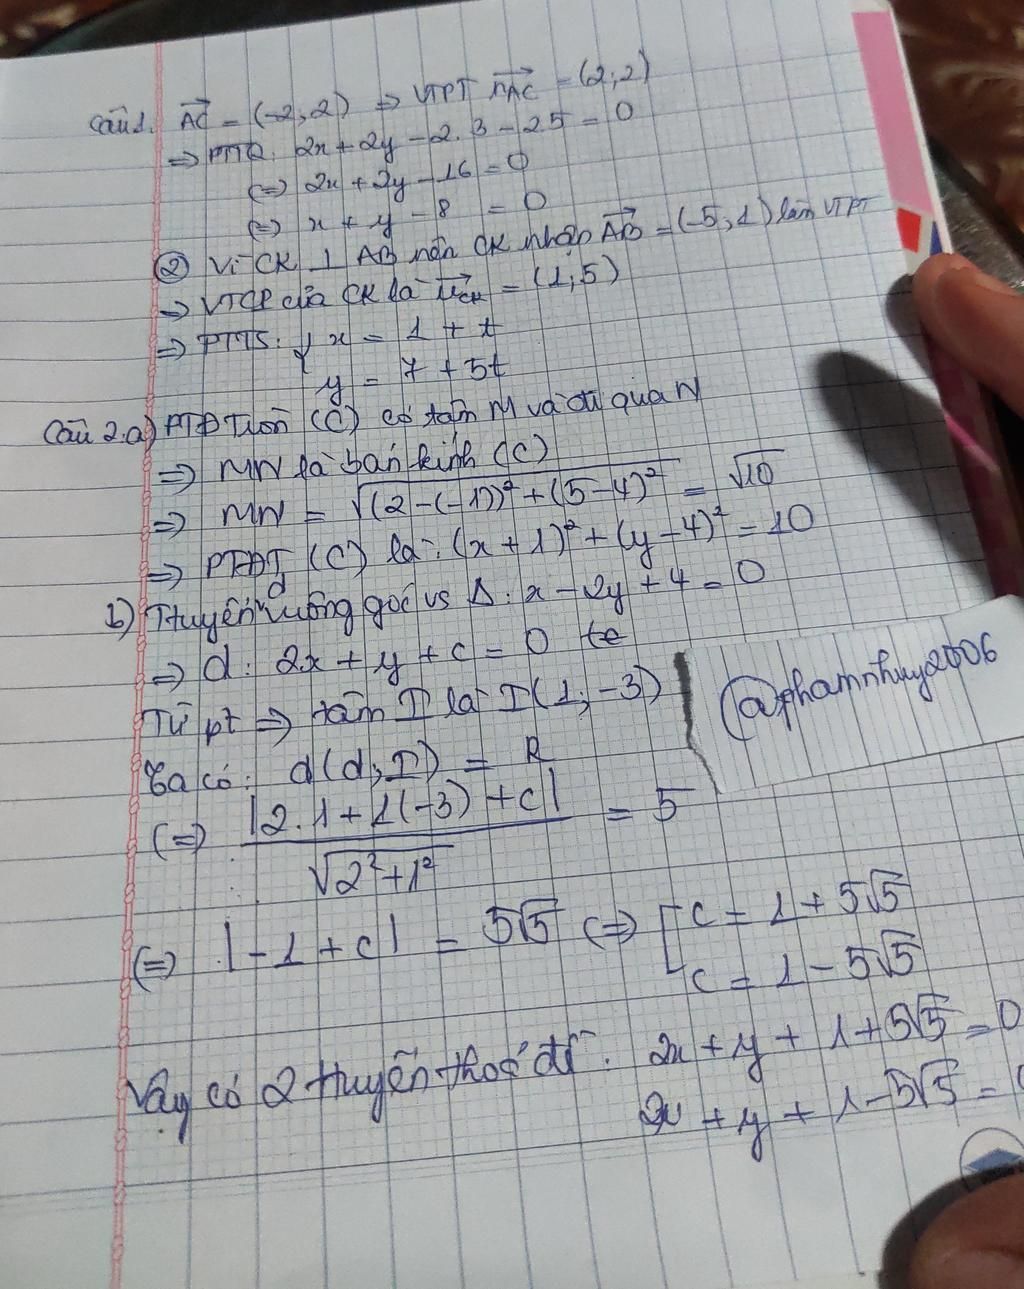 Câu 1. AC = (-2; 2) => VTPT nAC = (2; 2)
=> PTTQ: 2x + 2y - 2.3 - 2.5 = 0
(=) 2x + 2y - 16 = 0
(=) x + y - 8 = 0
② Vì CK ⊥ AB nên CK nhận AB = (-5; 1) làm VTPT
=> VTCP của CK là uCK = (1; 5)
=> PTTS: { x = 1 + t
y = 7 + 5t
Câu 2.a) PTĐ Tròn (C) có tâm M và đi qua N
=> MN là bán kính (C)
=> MN = √((2-(-1))² + (5-4)²) = √10
=> PTĐT (C) là: (x + 1)² + (y - 4)² = 10
b) Ttuyến d vuông góc vs Δ: x - 2y + 4 = 0
=> d: 2x + y + c = 0
Từ pt => tâm I là I(1; -3)
@phamnhuy2006
Ta có: d(d; I) = R
(=) |2.1 + 1(-3) + c| / √(2² + 1²) = 5
(=) |-1 + c| = 5√5 (=) [ c = 1 + 5√5
c = 1 - 5√5
Vậy có 2 ttuyến thoả đề: 2x + y + 1 + 5√5 = 0
2x + y + 1 - 5√5 =